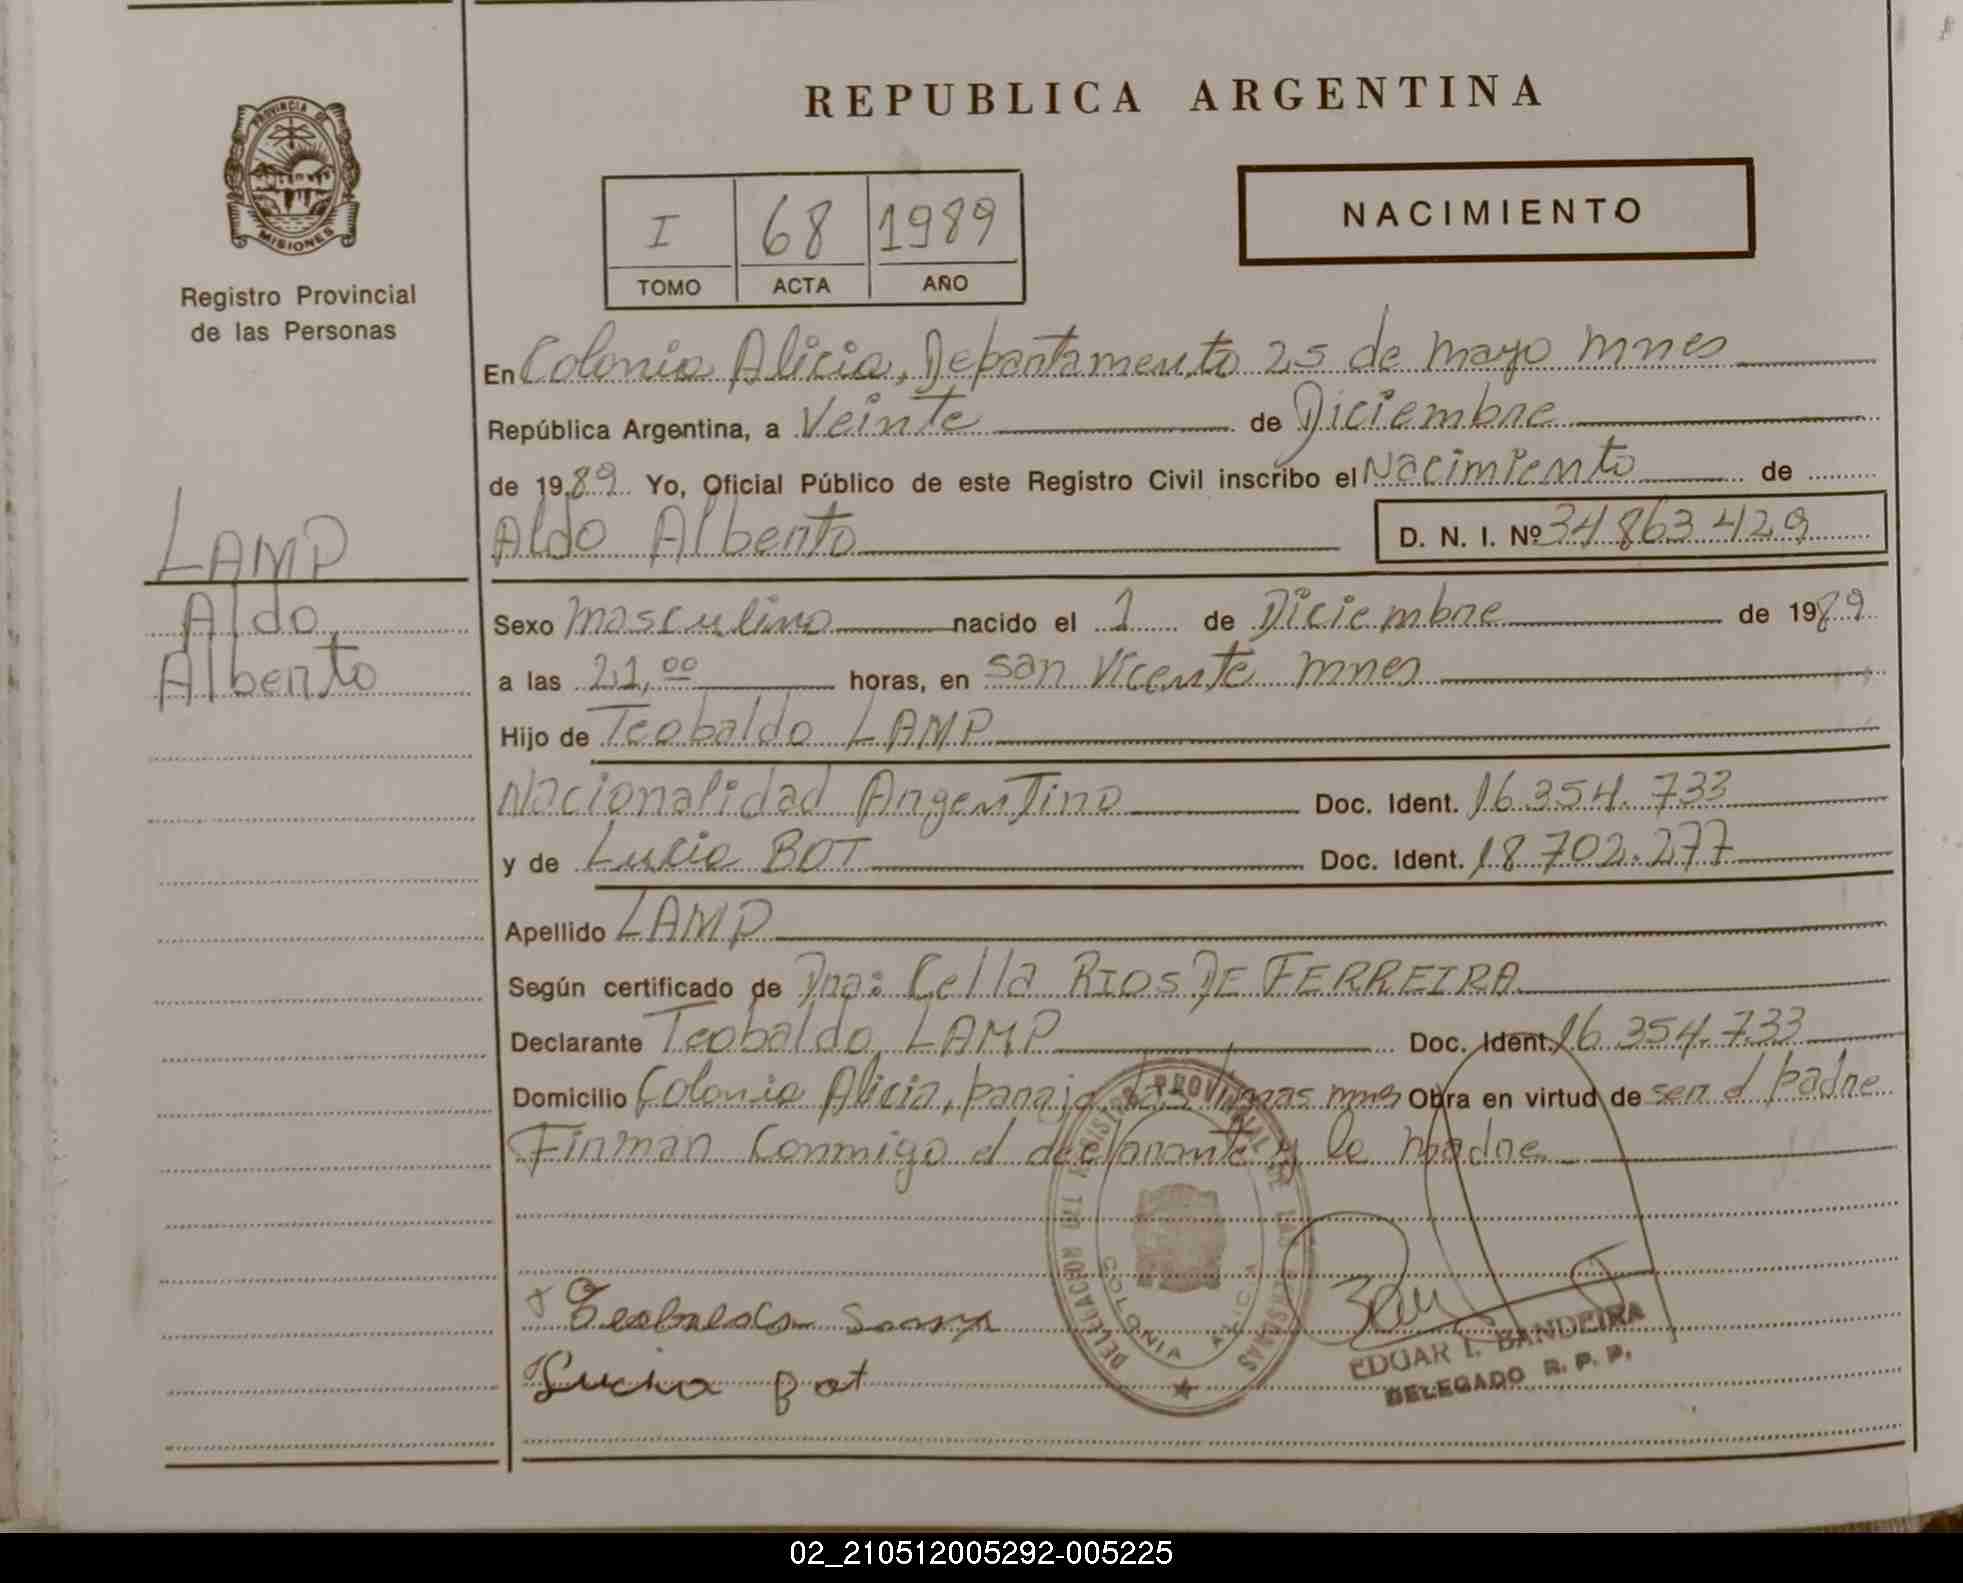 REPUBLICA ARGENTINA
PROVINCIA DE
MISIONES
Registro Provincial
de las Personas
I 68 1989
TOMO ACTA AÑO
NACIMIENTO
En Colonia Alicia, Departamento 25 de mayo mnes
República Argentina, a Veinte de Diciembre
de 1989 Yo, Oficial Público de este Registro Civil inscribo el Nacimiento de
Aldo Alberto D. N. I. Nº 34 863 429
LAMP
Aldo
Alberto
Sexo masculino nacido el 1 de Diciembre de 1989
a las 21,00 horas, en san Vicente mnes
Hijo de Teobaldo LAMP
Nacionalidad Argentino Doc. Ident. 16.354.733
y de Lucia BOT Doc. Ident. 18.702.277
Apellido LAMP
Según certificado de Dña: Celia RIOS DE FERREIRA
Declarante Teobaldo LAMP Doc. Ident. 16.354.733
Domicilio Colonia Alicia, paraje Las mnes Obra en virtud de ser el padre
Firman conmigo el declarante y la madre
Lucia Bot
DELEGACION REGISTRO PROVINCIAL DE LAS PERSONAS
COLONIA ALICIA
EDGAR I. BANDEIRA
DELEGADO R. P. P.
02_210512005292-005225